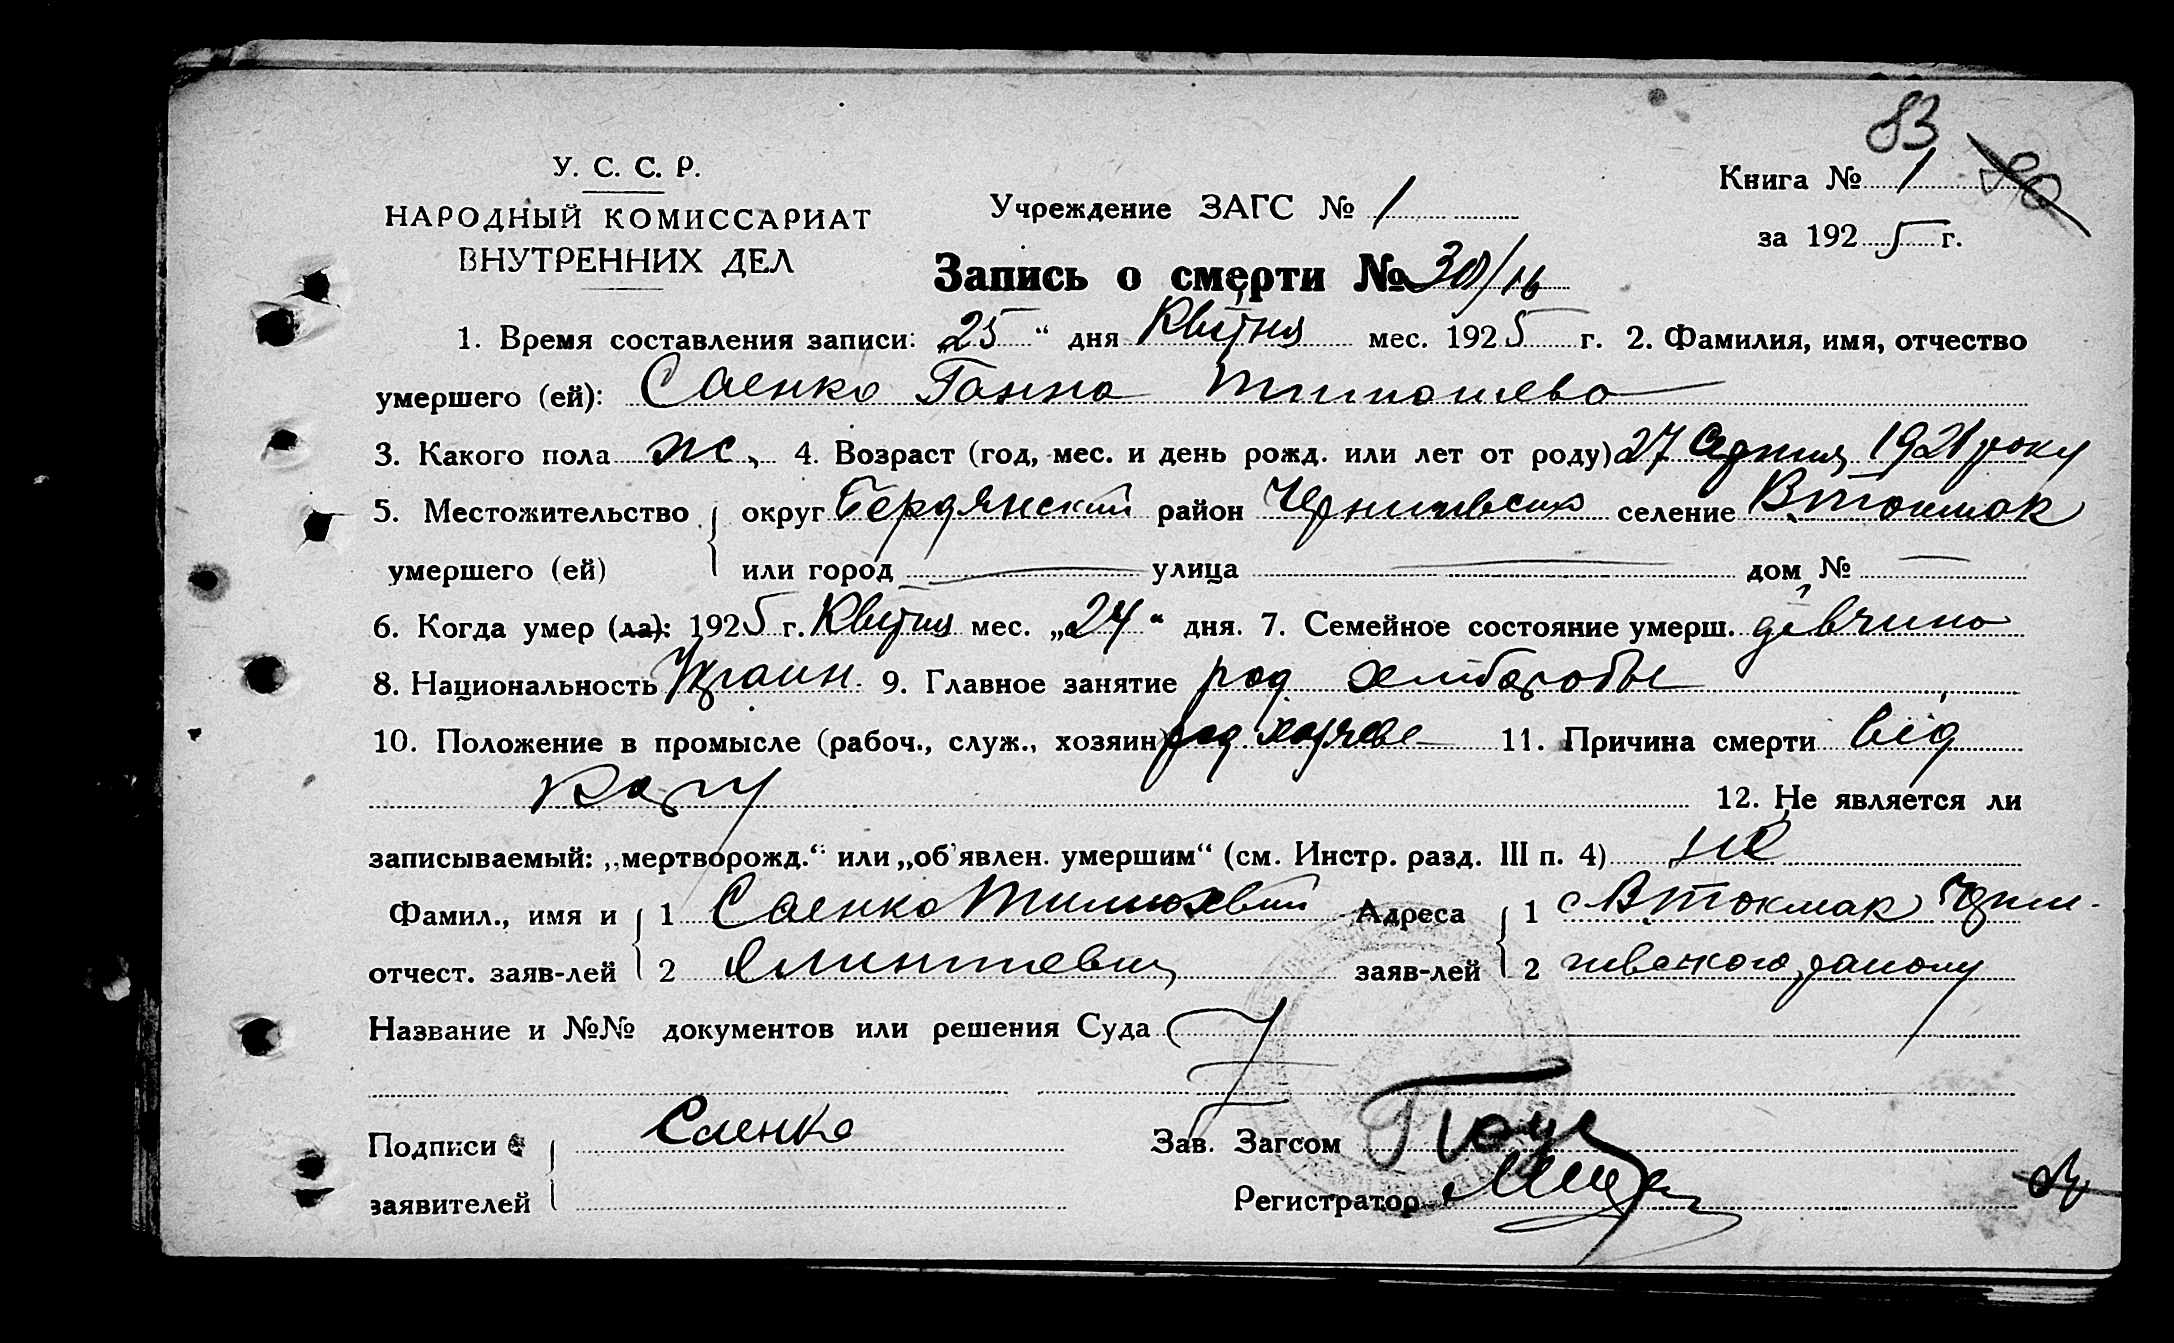 83
У. С. С. Р.
НАРОДНЫЙ КОМИССАРИАТ
ВНУТРЕННИХ ДЕЛ
Учреждение ЗАГС № 1
Книга № 1
за 1925 г.
Запись о смерти № 30/16
1. Время составления записи: „25“ дня Квітня мес. 1925 г. 2. Фамилия, имя, отчество
умершего (ей): Саенко Ганна
3. Какого пола ж. 4. Возраст (год, мес. и день рожд. или лет от роду) 27 Серпня 1921 року
5. Местожительство округ Бердянский район селение В. Токмак
умершего (ей) или город — улица — дом № —
6. Когда умер (ла): 1925 г. Квітня мес. „24“ дня. 7. Семейное состояние умерш. дівчина
8. Национальность Украин. 9. Главное занятие род
10. Положение в промысле (рабоч., служ., хозяин) род 11. Причина смерти від
кору 12. Не является ли
записываемый: „мертворожд.“ или „об'явлен. умершим“ (см. Инстр. разд. III п. 4) не
Фамил., имя и 1 Саенко Адреса 1 с. В. Токмак Черни-
отчест. заяв-лей 2 заяв-лей 2 гивского району
Название и №№ документов или решения Суда
Подписи Саенко Зав. Загсом
заявителей Регистратор